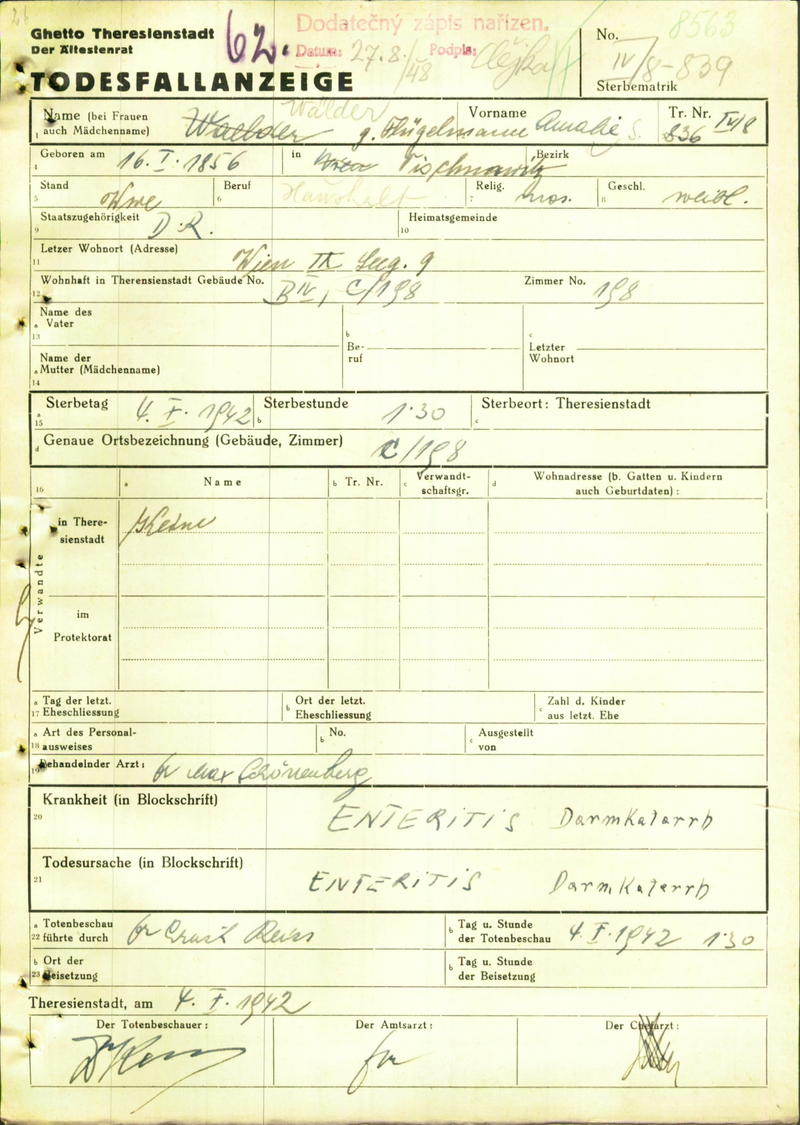 Ghetto Theresienstadt
Der Ältestenrat
62.
Dodatečný zápis nařízen.
Datum: 27.8./48 Podpis:
No. 8563
IV/8-839
Sterbematrik
TODESFALLANZEIGE
Walder
Name (bei Frauen auch Mädchenname) Walder g. Flügelmann Vorname Amalie S. Tr. Nr. 836 IV/8
1
4 Geboren am 16. I. 1856 in Wien Tischnowitz Bezirk
5 Stand Wwe 6 Beruf Haushalt 7 Relig. mos. 8 Geschl. weibl.
9 Staatszugehörigkeit D.R. 10 Heimatsgemeinde
11 Letzer Wohnort (Adresse) Wien IX Seeg. 9
12 Wohnhaft in Theresienstadt Gebäude No. BIV, C/198 Zimmer No. 198
13 a Name des Vater
14 a Name der Mutter (Mädchenname)
b Beruf
c Letzter Wohnort
15 a Sterbetag 4. X. 1942 b Sterbestunde 1·30 c Sterbeort: Theresienstadt
d Genaue Ortsbezeichnung (Gebäude, Zimmer) C/198
16 a Name b Tr. Nr. c Verwandtschaftsgr. d Wohnadresse (b. Gatten u. Kindern auch Geburtdaten):
Verwandte
in Theresienstadt Keine
im Protektorat
17 a Tag der letzt. Eheschliessung b Ort der letzt. Eheschliessung c Zahl d. Kinder aus letzt. Ehe
18 a Art des Personalausweises b No. c Ausgestellt von
19 Behandelnder Arzt: Dr Max Schönenberg
20 Krankheit (in Blockschrift) ENTERITIS Darmkatarrh
21 Todesursache (in Blockschrift) ENTERITIS Darmkatarrh
22 a Totenbeschau führte durch Dr Ernst Reiss b Tag u. Stunde der Totenbeschau 4. X. 1942 1·30
23 b Ort der Beisetzung b Tag u. Stunde der Beisetzung
Theresienstadt, am 4. X. 1942
Der Totenbeschauer: Der Amtsarzt: Der Chefarzt: